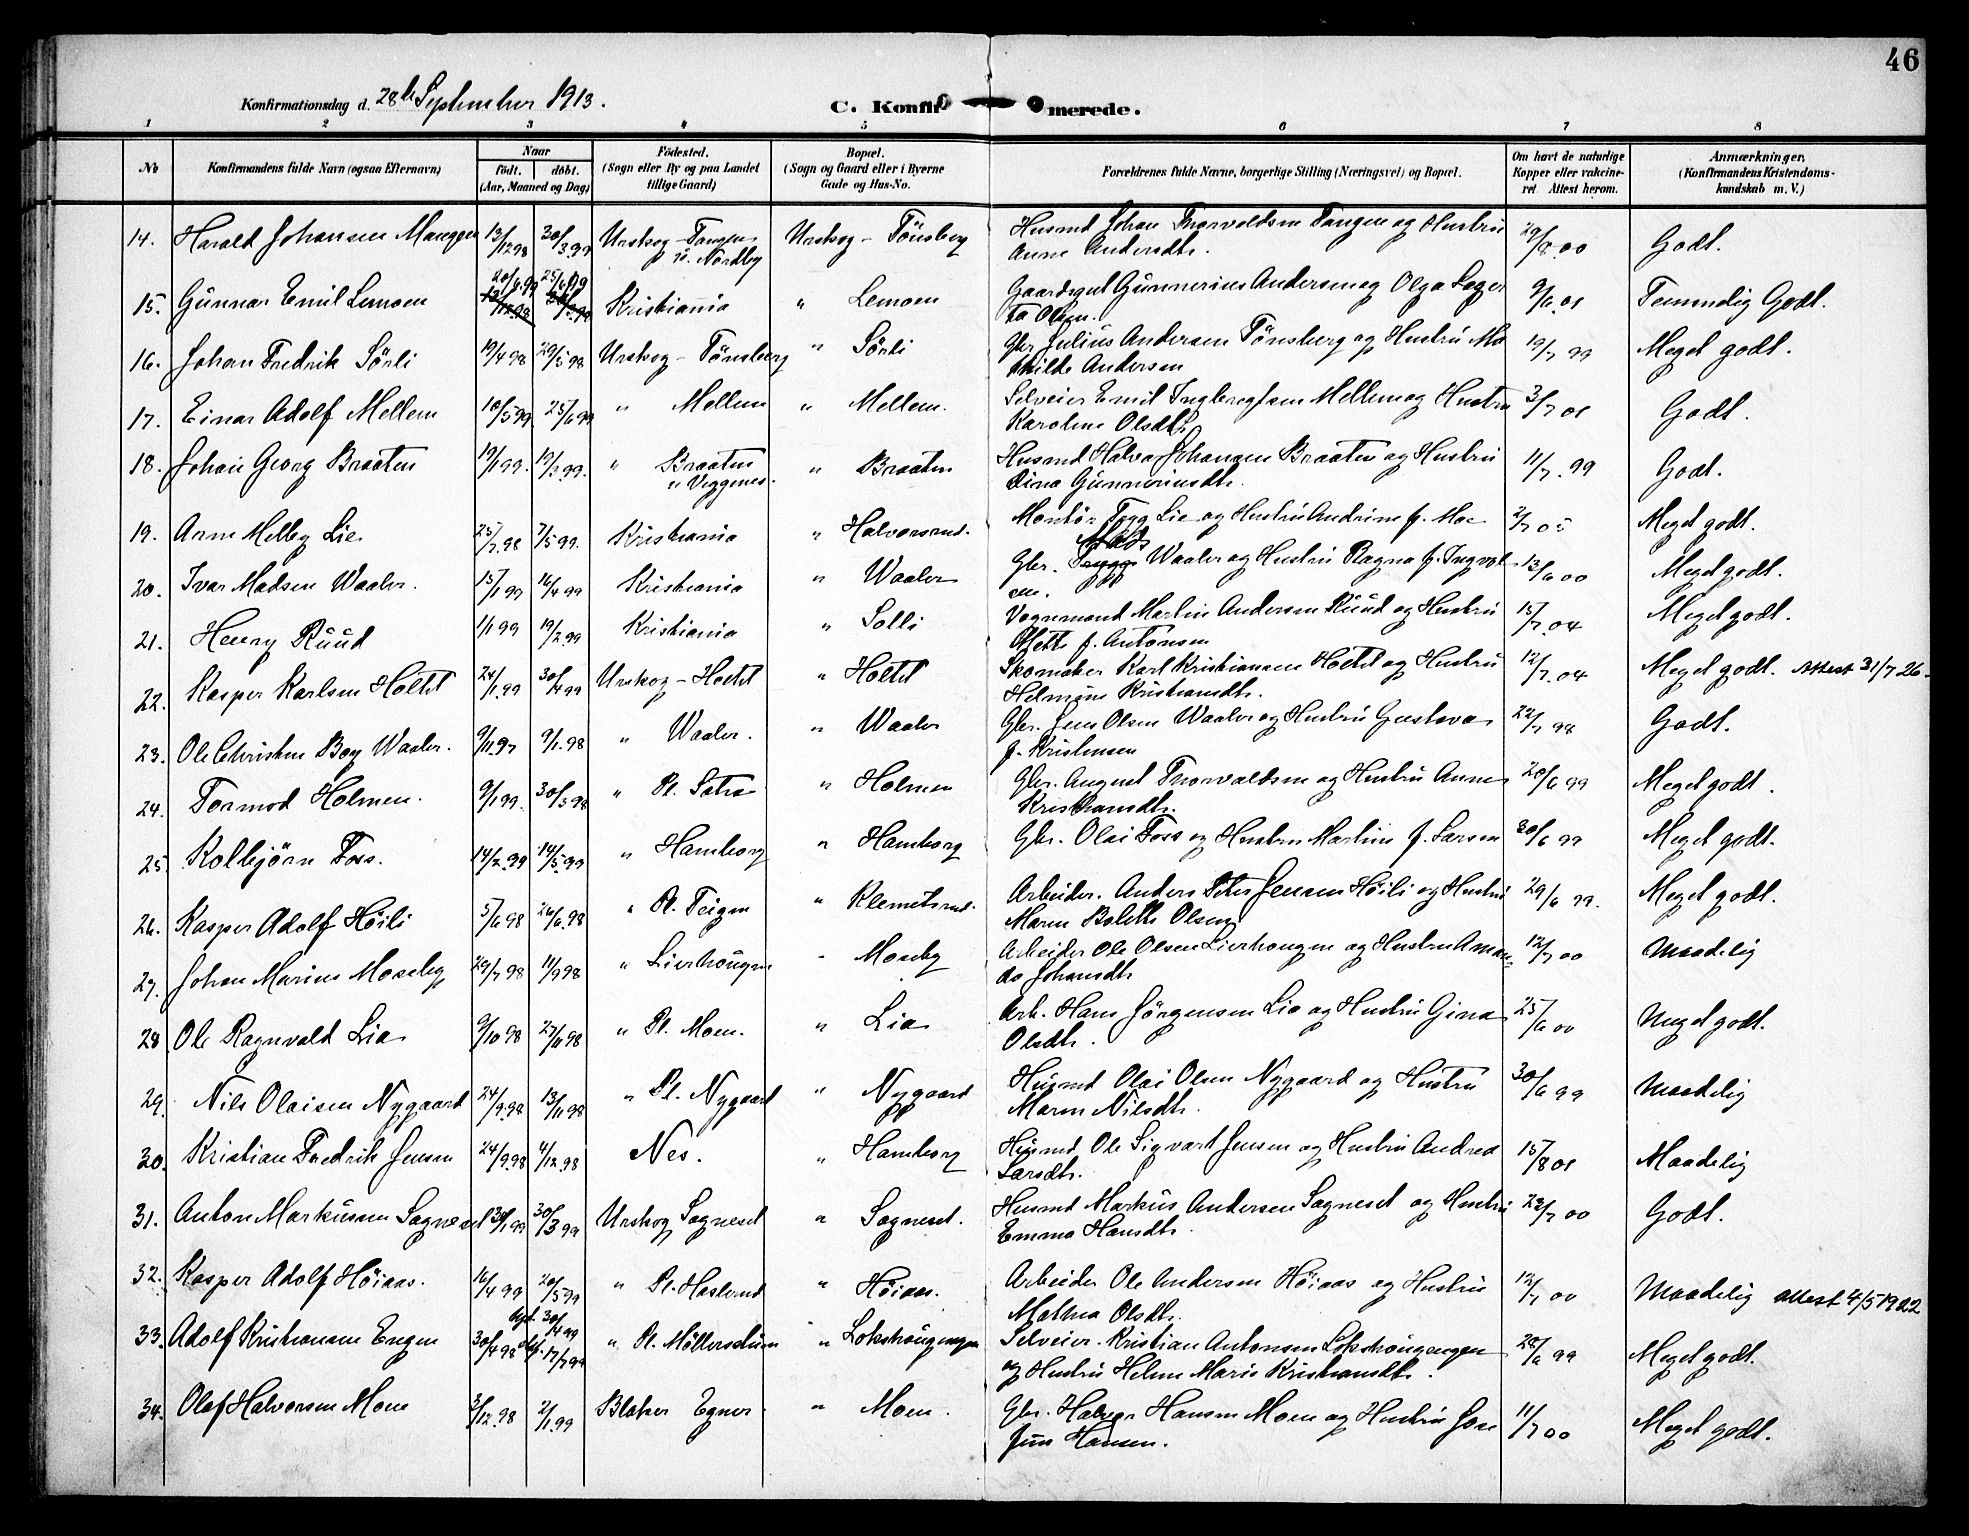 46
Konfirmationsdag d. 28de September 1913. C. Konfirmerede.
1 2 3 4 5 6 7 8
No Konfirmandens fulde Navn (ogsaa Efternavn) Naar födt. döbt. (Aar, Maaned og Dag) Födested. (Sogn eller By og paa Landet tillige Gaard) Bopæl. (Sogn og Gaard eller i Byerne Gade og Hus-No. Forældrenes fulde Navne, borgerlige Stilling (Næringsvei) og Bopæl. Om havt de naturlige Kopper eller vakcineret. Attest herom. Anmærkninger. (Konfirmandens Kristendomskundskab m. V.)
14. Harald Johansen 13/12 98 30/3 99 Urskog - Tangen u. Nordby Urskog - Tönsberg Husmd Johan Thorvaldsen Tangen og Hustru 29/8.00 Godt.
Anne Andersdtr.
15. Gunnar Emil Lemoen 20/4.99 25/6.99 Kristiania " Lemoen Gaardsgut Gunnerius Andersen og Olga 9/6.01 Temmelig Godt.
Olsen.
16. Johan Fredrik Sörli 19/4 98 29/5 98 Urskog - Tönsberg " Sörli Gbr. Julius Andersen Tönsberg og Hustru Ma 19/7 99 Meget godt.
thilde Andersen
17. Einar Adolf Mellem 10/5 99 25/6 99 " Mellem " Mellem. Selveier Emil Ingbregtsen Mellem og Hustru 3/7 01 Godt.
Karoline Olsdtr
18. Johan Georg Braaten 19/1 99. 19/3.99. " Braaten u Veggenes. " Braaten Husmd Halvor Johansen Braaten og Hustru 11/7.99 Godt.
Lina Gunneriusdtr.
19. Arne Melby Lie 25/7.98 7/5 99. Kristiania " Halvorsrud. Montör Trygg Lie og Hustru Andrine f. Moe 2/7 05 Meget godt.
20. Ivar Madsen Waaler. 15/1 99 16/4 99 Kristiania " Waaler Gbr. Mads Waaler og Hustru Ragna f. Ingvol 13/6 00 Meget godt.
sen.
21. Henry Ruud 1/1 99 19/2.99 Kristiania " Solli Vognmand Martin Andersen Ruud og Hustru 15/7.04 Meget godt.
Mette f. Antonsen
22. Kasper Karlsen Holtet 24/1.99 30/4 99 Urskog - Holtet " Holtet Skomaker Karl Kristiansen Holtet og Hustru 12/7.04 Meget godt. Attest 31/7 26.
Helmine Kristiansdtr.
23. Ole Christen Boy Waaler. 9/11.97 9/1.98 " Waaler. " Waaler Gbr. Jens Olsen Waaler og Hustru Gustava 22/7 98 Godt.
f. Kristensen
24. Tormod Holmen. 9/1 99. 30/3 98 " Pl. Sotra " Holmen Gbr. August Thorvaldsen og Hustru Anne 20/6 99 Meget godt.
Kristiansdtr.
25. Kolbjörn Foss. 14/2.99 14/5.99 " Hamborg " Hamborg Gbr. Olai Foss og Hustru Martine f. Larsen 30/6 99 Meget godt.
26. Kasper Adolf Höili 5/6 98 26/6.98 " Pl. Teigen " Klemetsrud. Arbeider. Anders Peter Jensen Höili og Hustru 29/6 99. Meget godt.
Maren Bolette Olsen
27. Johan Marius Moseby 29/7 98 11/9 98 " Lierhougen - Moseby Arbeider Ole Olsen Lierhougen og Hustru Aman 12/7 00 Maadelig
da Johansdtr
28 Ole Ragnvald Lia 9/10 98 27/11 98 " Pl. Moen. " Lia Arb. Hans Jörgensen Lia og Hustru Gina 25/6 00 Meget godt.
Olsdtr.
29. Nils Olaisen Nygaard 24/9.98 13/11 98 " Pl. Nygaard " Nygaard Husmd Olai Olsen Nygaard og Hustru 30/6 99 Maadelig
Maren Nilsdtr.
30. Kristian Fredrik Jensen 24/9.98 4/12.98 Nes. " Hamborg Husmd Ole Sigvart Jensen og Hustru Andrea 15/8 01 Maadelig
Larsdtr.
31. Anton Markusen Sagneset 30/1 99 30/3 99 Urskog Sagneset " Sagneset. Husmd Markus Andersen Sagneset og Hustru 22/7 00 Godt.
Emma Hansdtr.
32. Kasper Adolf Höiaas. 16/4 99 20/5 99 " Pl. Haslerud " Höiaas. Arbeider Ole Andersen Höiaas og Hustru 12/7 00 Maadelig attest 4/5 1922
Mathea Olsdtr.
33. Adolf Kristiansen Engen 30/4 98 30/4 99 17/7 99 " Pl. " Lokshougengen Selveier. Kristian Antonsen Lokshougengen 28/6 99 Meget godt.
og Hustru Helene Marie Kristiansdtr.
34. Olaf Halvorsen Moen 3/12.98 2/1.99 Blaker Egner " Moen. Gbr. Halvor Hansen Moen og Hustru Jose 11/7 00 Meget godt.
fine Hansen.